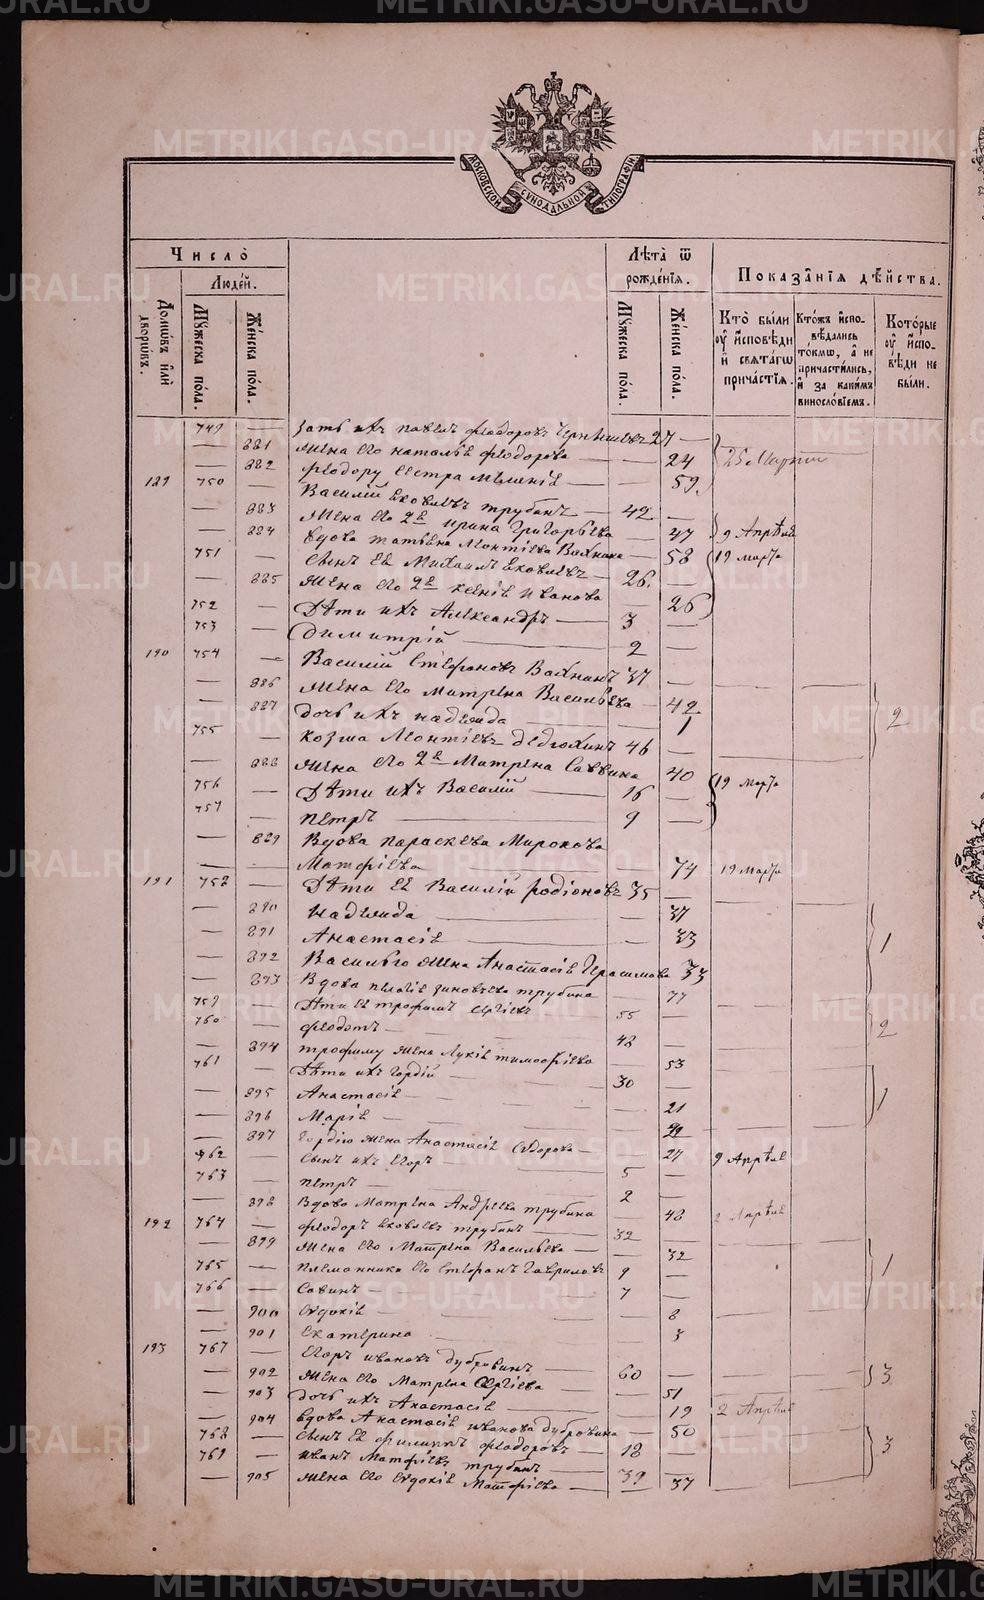 METRIKI.GASO-URAL.RU
МОСКОВСКОЙ СУНОДАЛЬНОЙ ТИПОГРАФІИ
Число
Людей.
Домωвъ или дворωвъ.
Мꙋжеска пола.
Женска пола.
Лѣта ѿ рожденїѧ.
Мꙋжеска пола.
Женска пола.
Показанїѧ дѣйства.
Кто были ᲂу҆ исповѣди и свѧтагω причастїѧ.
Ктожъ исповѣдались токмω, а не причастились, и за какимъ винословїемъ.
Которые ᲂу҆ исповѣди не были.
749 — Зять ихъ Павелъ Феодоровъ 27 —
— 881 Жена его Наталья Феодорова — 24 25 Марта
— 882 Феодору сестра — 59
189 750 — Василий Яковлевъ Трубинъ — 42 —
— 883 Жена его 2я Ирина Григорьева — 47 9 Апрѣля
— 884 Вдова Татьяна Леонтіева Вахнина — 58 19 марта
751 — Сынъ ея Михаилъ Яковлевъ — 26 —
— 885 Жена его 2я Ксенія Иванова — 26
752 — Дѣти ихъ Александръ — 3 —
753 — Димитрій — 2 —
190 754 — Василій Стефановъ Вахнинъ 37 —
— 886 Жена его Матрена Васильева — 42
— 887 Дочь ихъ Надежда — 1 2
755 — Козма Леонтіевъ Дедюхинъ 46 —
— 888 Жена его 2я Матрена Саввина 40 19 Марта
756 — Дѣти ихъ Василій — 16 —
757 — Петръ — 9 —
— 889 Вдова Параскева Миронова
Матфіева — 74 19 Марта
191 758 — Дѣти ея Василій Родіоновъ 35 —
— 890 Надежда — 37
— 891 Анастасія — 33 1
— 892 Василью жена Анастасія Герасимова 33
— 893 Вдова Пелагія Зиновьева Трубина — 77
759 — Дѣти ея Трофимъ Сергіевъ 55 —
760 — Феодотъ — 48 — 2
— 894 Трофиму жена Лукія Тимофеева — 53
761 — Дѣти ихъ Гордій — 30 —
— 895 Анастасія — 21 1
— 896 Марія —
— 897 Гордію жена Анастасія Сидорова — 27 9 Апрѣля
762 — Сынъ ихъ Егоръ — 5 —
763 — Петръ — 2 —
— 898 Вдова Матрена Андреева Трубина — 48 2 Апрѣля
192 764 — Феодоръ Яковлевъ Трубинъ — 32 —
— 899 Жена его Матрена Васильева — 32
765 — Племянники его Стефанъ Гавриловъ 9 — 1
766 — Савинъ — 7 —
— 900 Евдокія — 8
— 901 Екатерина — 3
193 767 — Егоръ Ивановъ Дубровинъ — 60 —
— 902 Жена его Матрена Сергіева — 51 3
— 903 Дочь ихъ Анастасія — 19 2 Апрѣля
— 904 Вдова Анастасія Иванова Дубровина — 50
768 — Сынъ ея Филиппъ Феодоровъ 18 — 3
769 — Иванъ Матфіевъ Трубинъ — 39 —
— 905 Жена его Евдокія Матфіева — 37